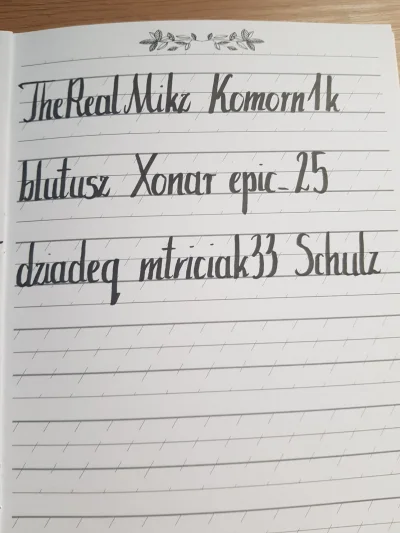 TheRealMikz Komorn1k
blutusz Xonar epic_25
dziadeq mtriciak33 Schulz